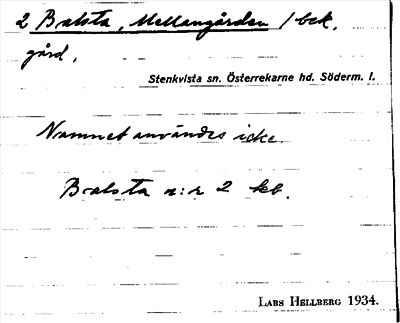 2 Balsta, Mellangården / bek.
gård,
Stenkvista sn. Österrekarne hd. Söderm. l.
Namnet användes icke.
Balsta n:r 2 kb.
LARS HELLBERG 1934.